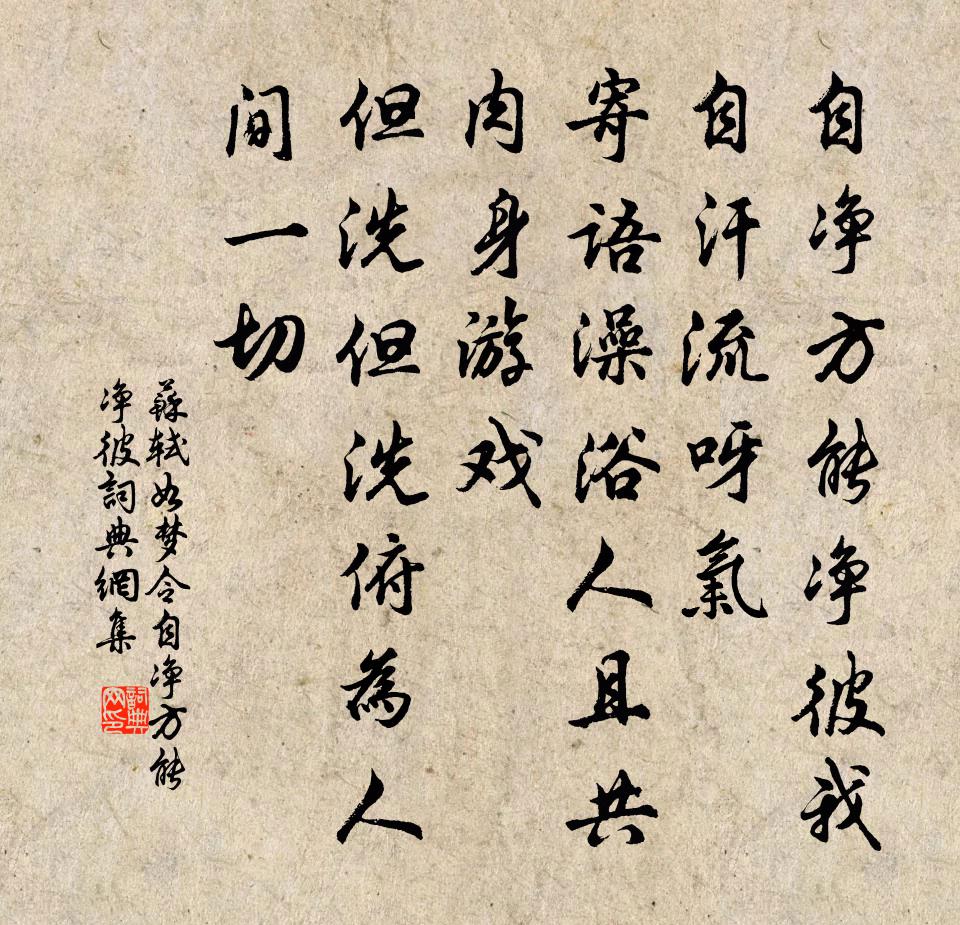 自净方能净彼我
自汗流呀氣
寄語澡浴人且共
肉身游戏
但洗但洗俯為人
間一切
蘇軾如梦令自净方能
净彼詞典網集
詞典网印